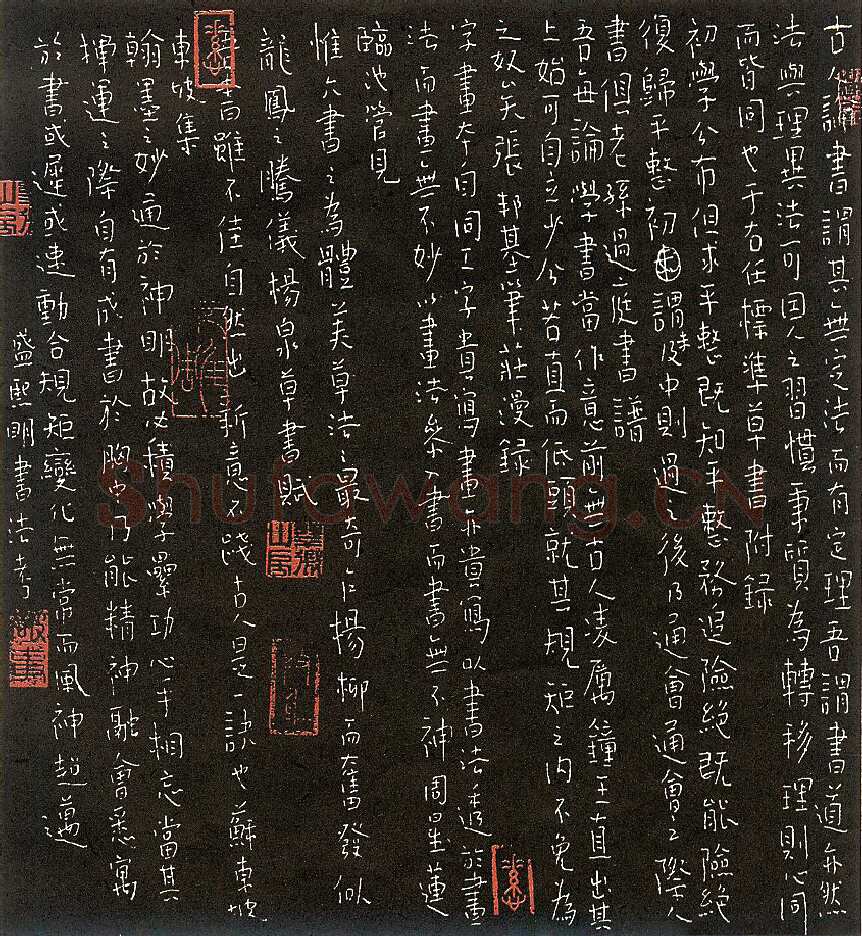 古人論書謂其無定法而有定理吾謂書道亦然
法與理異法可因人之習慣秉質為轉移理則心同
而皆同也于右任標準草書附錄
初學分布但求平整既知平整務追險絕既能險絕
復歸平整初謂未及中則過之後乃通會通會之際人
書俱老孫過庭書譜
吾每論學書當作意前無古人凌厲鐘王直出其
上始可自立少分若直而低頭就其規矩之內不免為
之奴矣張邦基筆莊漫錄
字畫本自同工字貴寫畫亦貴寫以書法透於畫
法而畫無不妙以畫法參入書而書無不神周星蓮
臨池管見
惟六書之為體美草法之最奇乍楊柳而奮發似
龍鳳之騰儀楊泉草書賦
書雖不佳自然出新意不踐古人是一訣也蘇東坡
東坡集
翰墨之妙通於神明故必積學累功心手相忘當其
揮運之際自有成書於胸中乃能精神融會悉寓
於書或遲或速動合規矩變化無常而風神超邁
盛熙明書法考
Shufawang.CN